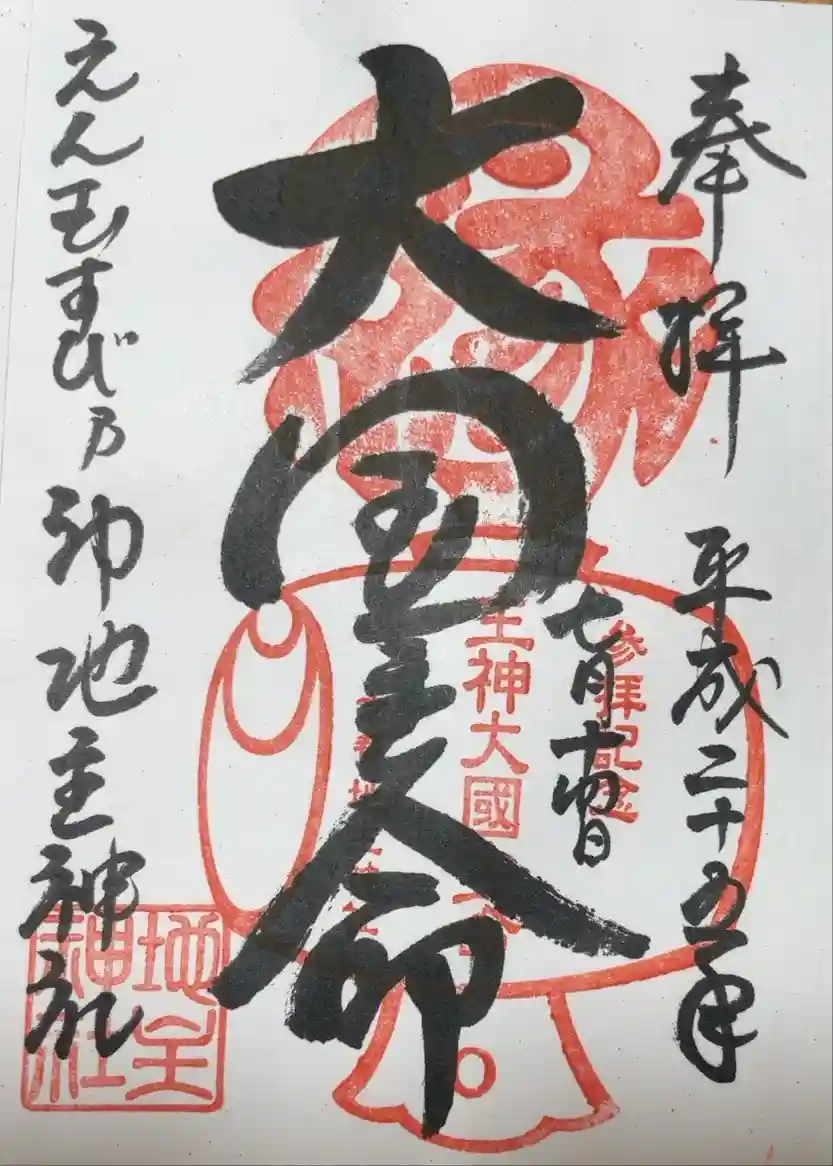 奉拝 平成二十五年
七月十四日
大国主命
えんむすび乃神 地主神社
縁
参拝記念
主神大國
地主神社